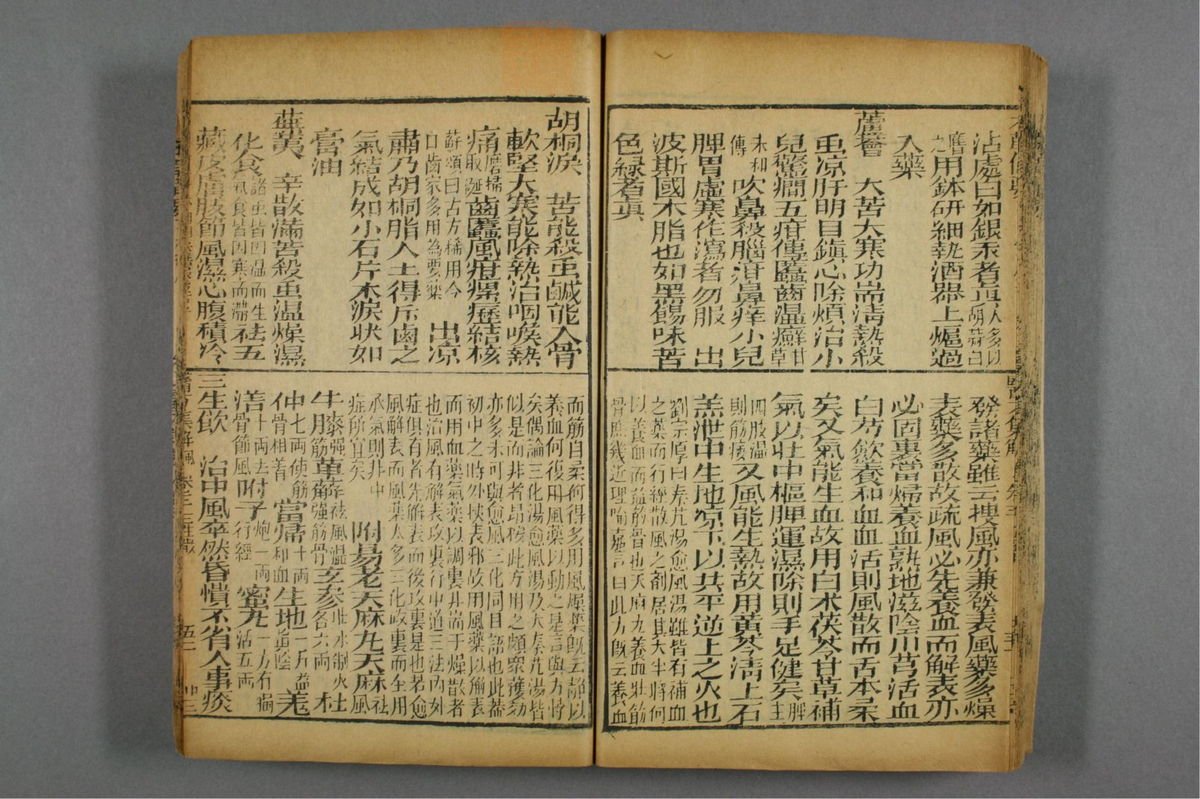 沾處白如銀汞者真
用鉢研細熱酒器上煏過
入藥
蘆薈　大苦大寒功耑清熱殺
虫凉肝明目鎮心除煩治小
兒驚癇五疳傳䘌齒濕癬甘草
末和傳吹鼻殺腦疳鼻痒小兒
脾胃虛寒作瀉者勿服　出
波斯國木脂也如黑餳味苦
色緑者真
發諸藥雖云搜風亦兼發表風藥多燥
表藥多散故疏風必先養血而解表亦
必固裏當歸養血熟地滋陰川芎活血
白芍歛陰養血血活則風散而舌本柔
矣又氣能生血故用白术茯苓甘草補
氣以壯中樞脾運濕除則手足健矣脾主
四肢濕則筋痿又風能生熱故用黄芩清上石
羔泄中生地凉下以共平逆上之火也
劉宗厚曰秦艽湯愈風湯雖皆有補血
之藥而行經散風之劑居其大半將何
以養血而益筋骨也天麻丸養血壯筋
骨庶幾近理喻嘉言曰此方既云養血
胡桐淚　苦能殺虫鹹能入骨
軟堅大寒能除熱治咽喉熱
痛磨掃取涎齒䘌風疳瘰癧結核
蘇頌曰古方稀用今口齒家多用為要藥　出凉
肅乃胡桐脂入土得斥鹵之
氣結成如小石片木淚狀如
膏油
蕪荑　辛散滿苦殺虫温燥濕
化食諸虫皆因温而生氣食皆因寒而滯祛五
藏皮膚肢節風濕心腹積冷
而筋自柔何得多用風燥藥既云静以
養血何得復用風藥以動之是言與方悖
矣偶論三化湯愈風湯及大秦艽湯皆
似是而非者昂按此方用之頗衆獲効
亦多未可與愈風三化同日語也此蓋
初中之時外挾表邪故用風藥以觧表
而用血藥氣藥以調裏非耑于燥散者
也治風有解表攻裏行中道三法內外
症俱有者先解表而後攻裏是也若愈
風解表而風藥太多三化攻裏而全用
承氣則非中症所宜矣　附易老天麻丸天麻祛風
牛膝强筋萆薢祛風濕强筋骨玄參壯水制火各六兩杜
仲七兩使筋骨相着當歸十兩和血生地一斤益陰羗
活十兩去骨節風附子炮一兩行經蜜丸一方有獨活五兩
三生飲　治中風卒然昏憒不省人事痰